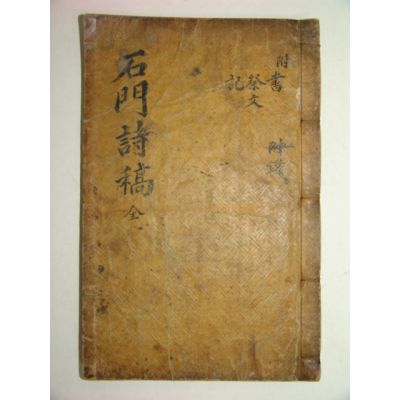 石門詩稿 全
附
書
祭文
記